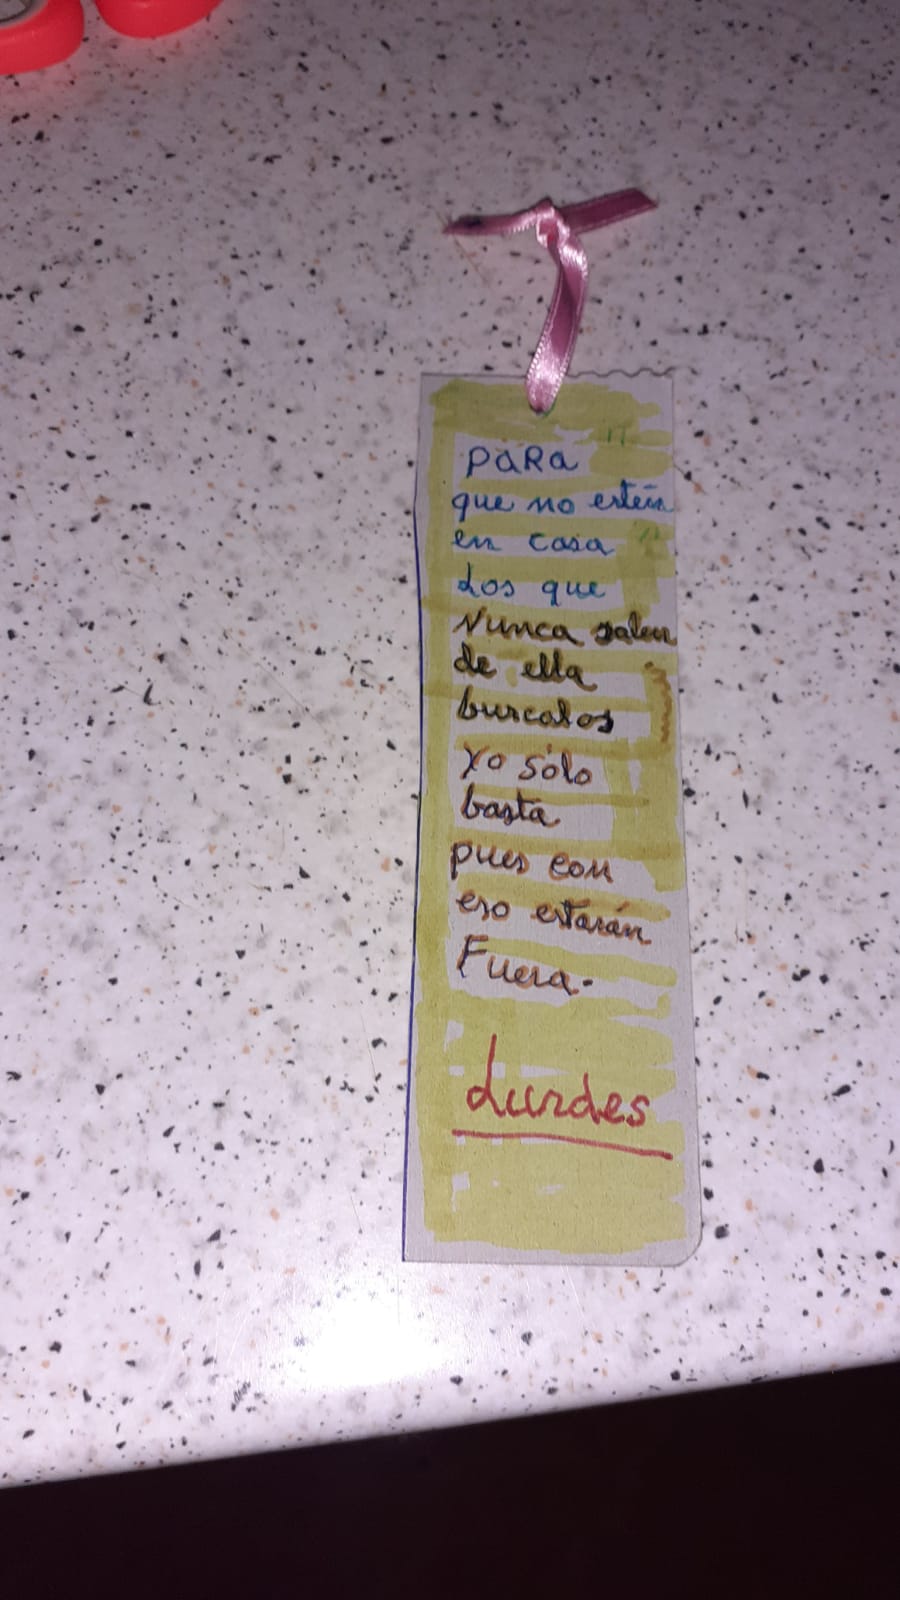 "
PaRa
que no estén
en casa "
Los que
Nunca salen
de ella
buscalos
Yo sólo
basta
pues con
eso estarán
Fuera.
Lurdes